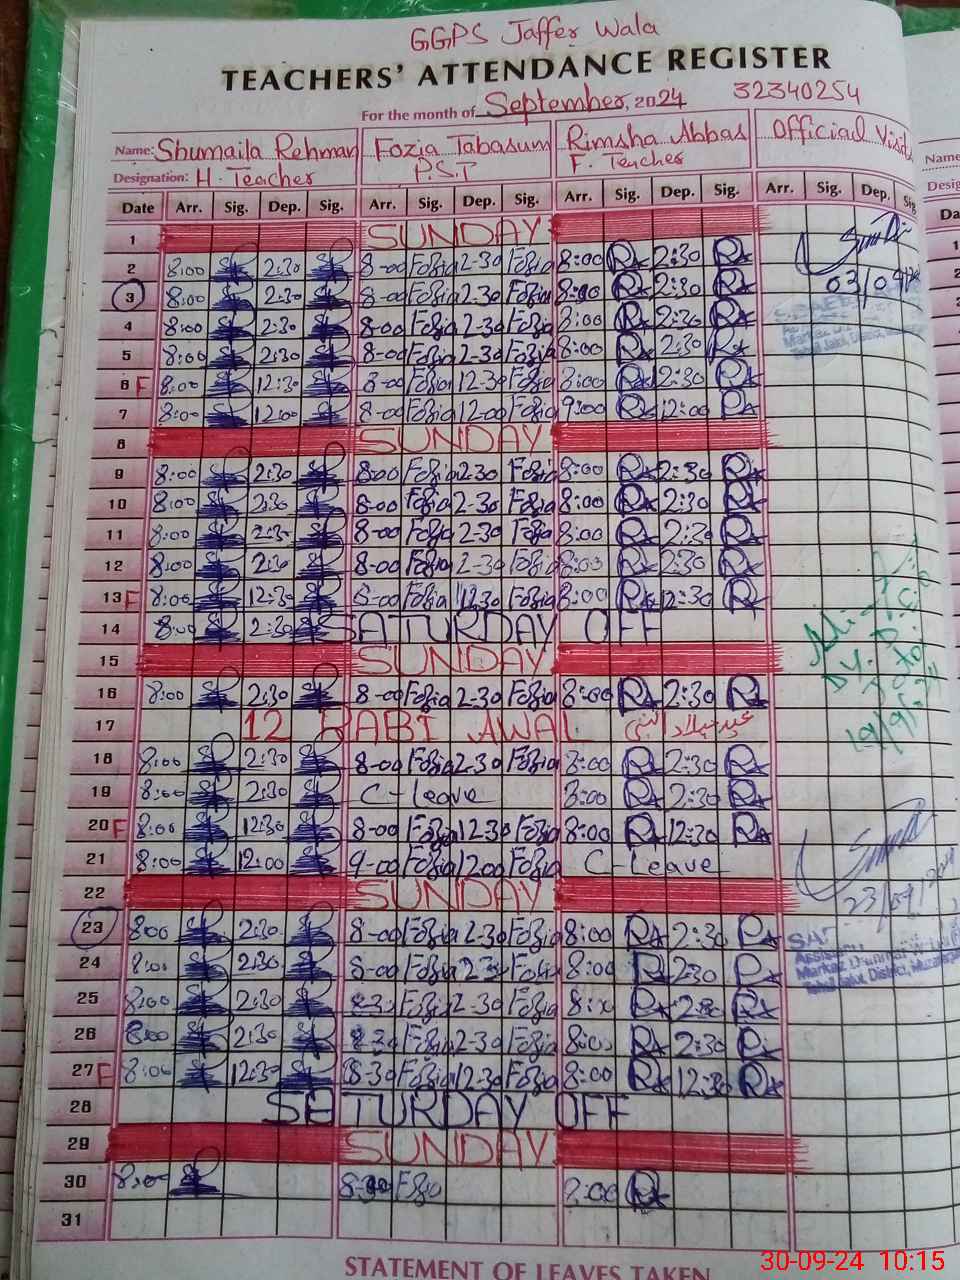 GGPS Jaffer Wala
TEACHERS' ATTENDANCE REGISTER
For the month of September, 2024 32340254
Name: Shumaila Rehman Fozia Tabasum Rimsha Abbas Official Visit
Designation: H. Teacher P.S.T F. Teacher
Date Arr. Sig. Dep. Sig. Arr. Sig. Dep. Sig. Arr. Sig. Dep. Sig. Arr. Sig. Dep. Sig.
1 SUNDAY
2 8:00 2:30 8-00 Fozia 2-30 Fozia 8:00 2:30
3 8:00 2:30 8-00 Fozia 2-30 Fozia 8:00 2:30 03/09/
4 8:00 2:30 8-00 Fozia 2-30 Fozia 8:00 2:30
5 8:00 2:30 8-00 Fozia 2-30 Fozia 8:00 2:30
6 F 8:00 12:30 8-00 Fozia 12-30 Fozia 8:00 12:30
7 8:00 12:00 8-00 Fozia 12-00 Fozia 9:00 12:00
8 SUNDAY
9 8:00 2:30 8-00 Fozia 2-30 Fozia 8:00 2:30
10 8:00 2:30 8-00 Fozia 2-30 Fozia 8:00 2:30
11 8:00 2:30 8-00 Fozia 2-30 Fozia 8:00 2:30
12 8:00 2:30 8-00 Fozia 2-30 Fozia 8:00 2:30
13 F 8:00 12:30 8-00 Fozia 12-30 Fozia 8:00 12:30
14 8:00 2:30 SATURDAY OFF
15 SUNDAY
16 8:00 2:30 8-00 Fozia 2-30 Fozia 8:00 2:30
17 12 RABI AWAL عید میلاد النبی
19/9/24
18 8:00 2:30 8-00 Fozia 2-30 Fozia 8:00 2:30
19 8:00 2:30 C-Leave 8:00 2:30
20 F 8:00 12:30 8-00 Fozia 12-30 Fozia 8:00 12:30
21 8:00 12:00 9-00 Fozia 12-00 Fozia C-Leave
22 SUNDAY
23/09/
23 8:00 2:30 8-00 Fozia 2-30 Fozia 8:00 2:30
24 8:00 2:30 8-00 Fozia 2-30 Fozia 8:00 2:30
25 8:00 2:30 8-30 Fozia 2-30 Fozia 8:00 2:30
26 8:00 2:30 8-30 Fozia 2-30 Fozia 8:00 2:30
27 F 8:00 12:30 8-30 Fozia 12-30 Fozia 8:00 12:30
28 SETURDAY OFF
29 SUNDAY
30 8:00 Fozia 8:00
31
STATEMENT OF LEAVES TAKEN
30-09-24 10:15